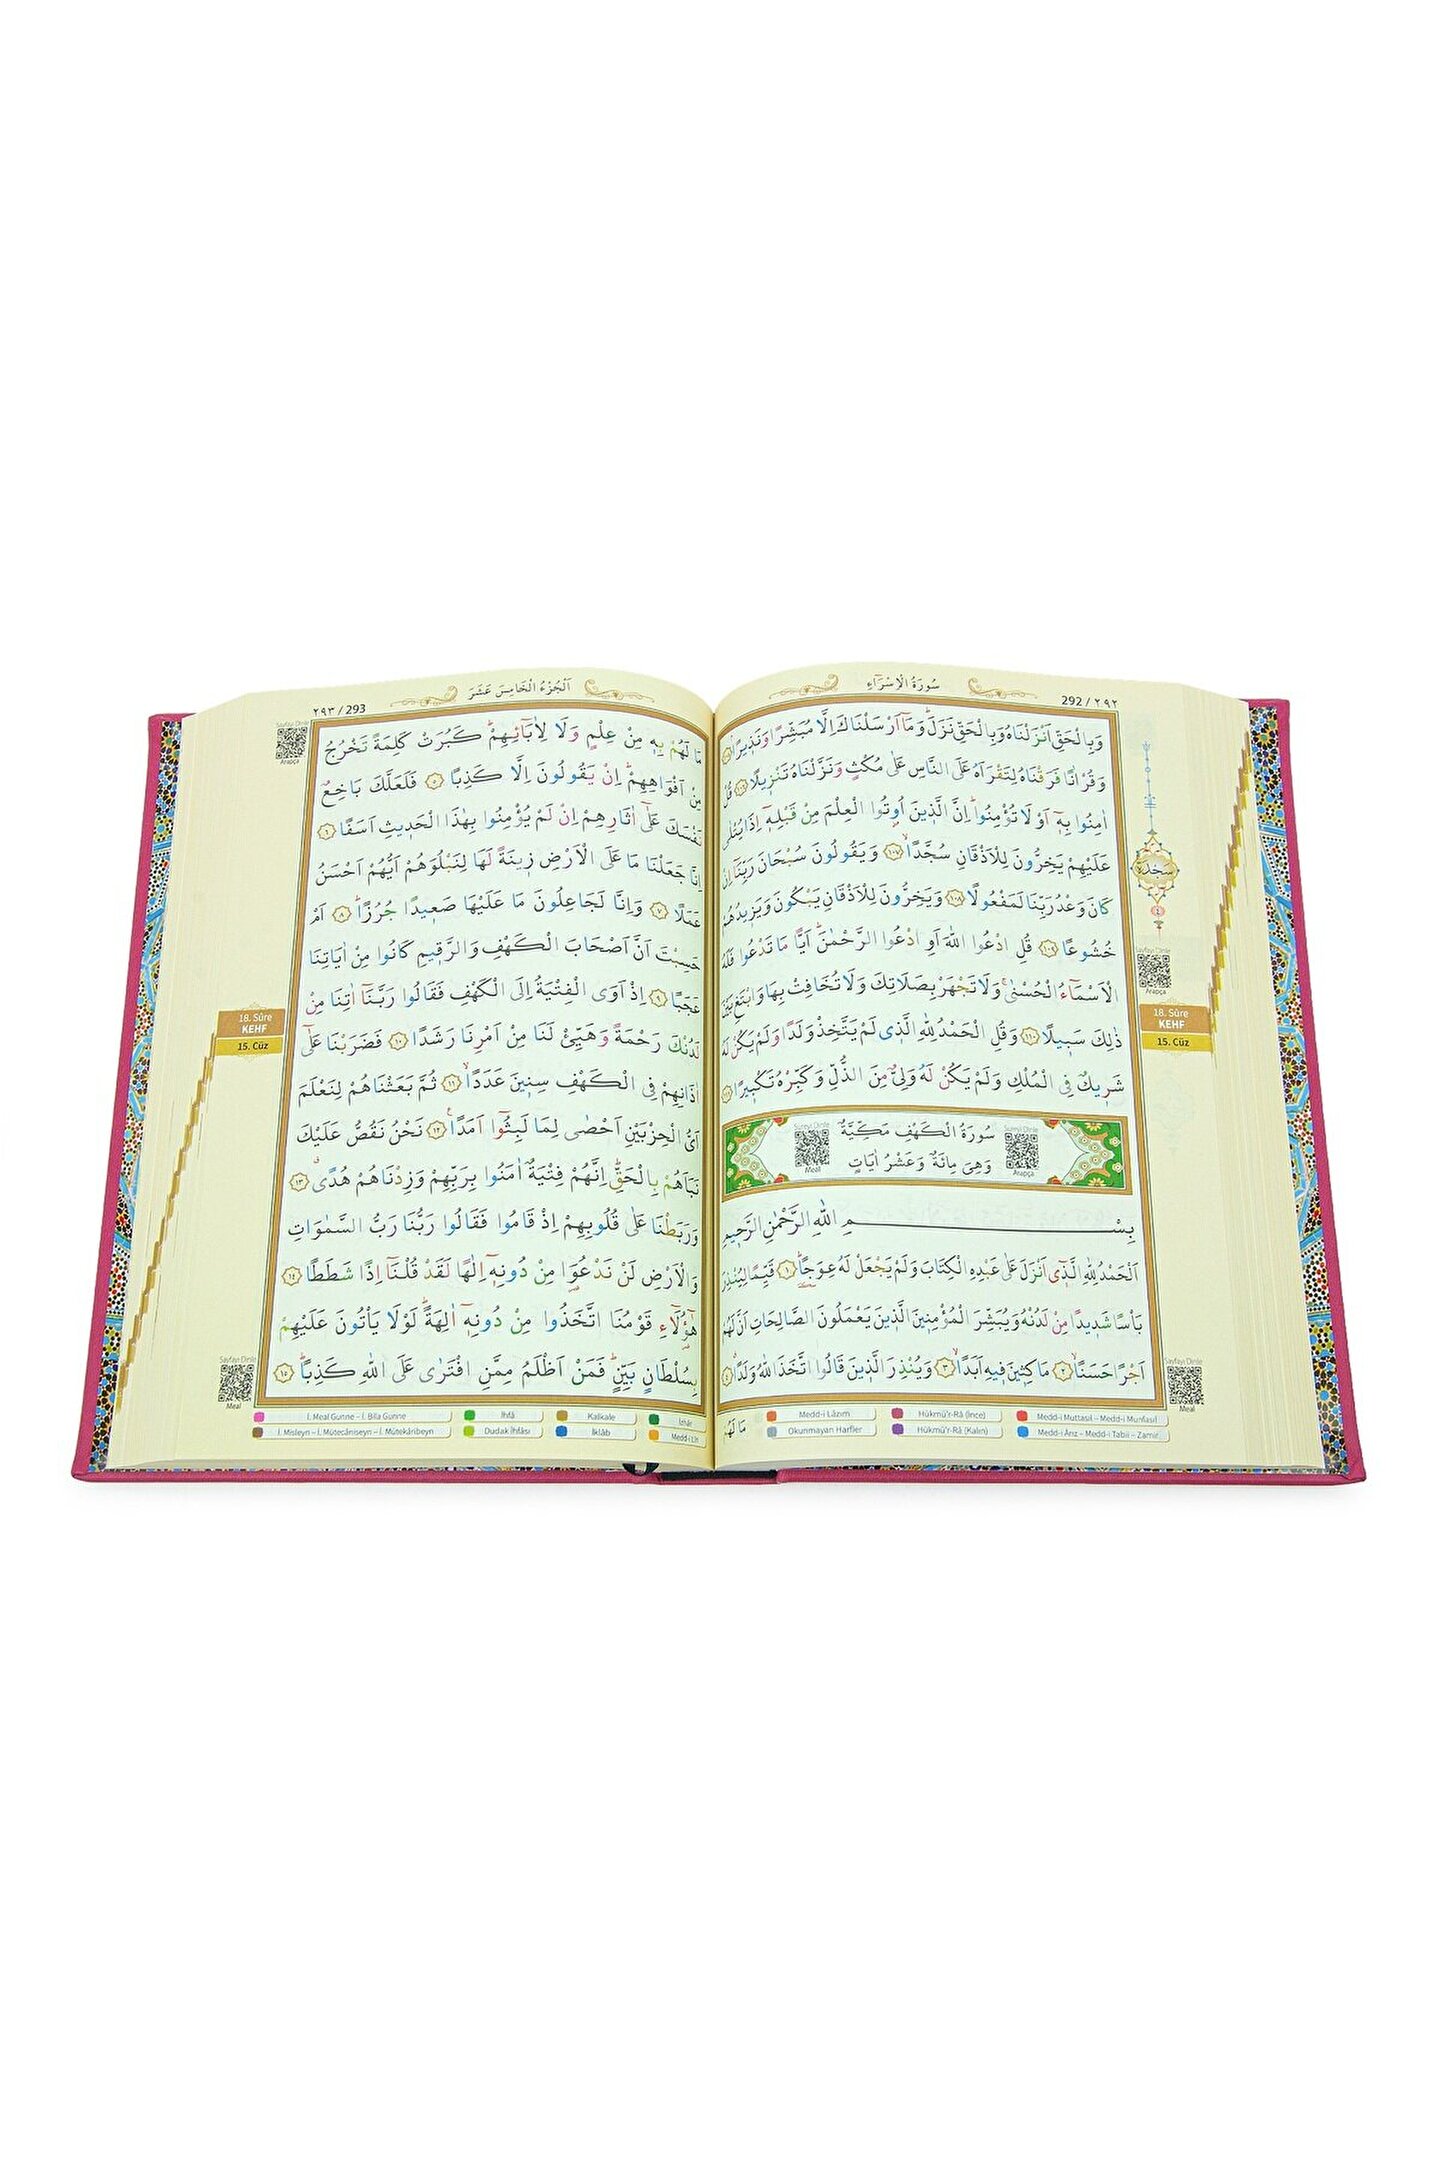 سُورَةُ الْاِسْرَاءِ
292 / ٢٩٢
وَبِالْحَقِّ اَنْزَلْنَاهُ وَبِالْحَقِّ نَزَلَۜ وَمَٓا اَرْسَلْنَاكَ اِلَّا مُبَشِّرًا وَنَذ۪يرًاۢ
وَقُرْاٰنًا فَرَقْنَاهُ لِتَقْرَاَهُ عَلَى النَّاسِ عَلٰى مُكْثٍ وَنَزَّلْنَاهُ تَنْز۪يلًا ﴿١٠٦﴾ قُلْ
اٰمِنُوا بِه۪ٓ اَوْ لَا تُؤْمِنُواۜ اِنَّ الَّذ۪ينَ اُو۫تُوا الْعِلْمَ مِنْ قَبْلِه۪ٓ اِذَا يُتْلٰى
عَلَيْهِمْ يَخِرُّونَ لِلْاَذْقَانِ سُجَّدًاۙ ﴿١٠٧﴾ وَيَقُولُونَ سُبْحَانَ رَبِّنَٓا اِنْ
كَانَ وَعْدُ رَبِّنَا لَمَفْعُولًا ﴿١٠٨﴾ وَيَخِرُّونَ لِلْاَذْقَانِ يَبْكُونَ وَيَز۪يدُهُمْ
خُشُوعًا ﴿١٠٩﴾ قُلِ ادْعُوا اللّٰهَ اَوِ ادْعُوا الرَّحْمٰنَۜ اَيًّا مَا تَدْعُوا فَلَهُ
الْاَسْمَٓاءُ الْحُسْنٰىۚ وَلَا تَجْهَرْ بِصَلَاتِكَ وَلَا تُخَافِتْ بِهَا وَابْتَغِ بَيْنَ
ذٰلِكَ سَب۪يلًا ﴿١١٠﴾ وَقُلِ الْحَمْدُ لِلّٰهِ الَّذ۪ي لَمْ يَتَّخِذْ وَلَدًا وَلَمْ يَكُنْ لَهُ
شَر۪يكٌ فِي الْمُلْكِ وَلَمْ يَكُنْ لَهُ وَلِيٌّ مِنَ الذُّلِّ وَكَبِّرْهُ تَكْب۪يرًا ﴿١١١﴾
سُورَةُ الْكَهْفِ مَكِّيَّةٌ
وَهِيَ مِائَةٌ وَعَشْرُ اٰيَاتٍ
Meal
Arapça
بِسْمِ اللّٰهِ الرَّحْمٰنِ الرَّح۪يمِ
اَلْحَمْدُ لِلّٰهِ الَّذ۪ٓي اَنْزَلَ عَلٰى عَبْدِهِ الْكِتَابَ وَلَمْ يَجْعَلْ لَهُ عِوَجًاۜ ﴿١﴾ قَيِّمًا لِيُنْذِرَ
بَأْسًا شَد۪يدًا مِنْ لَدُنْهُ وَيُبَشِّرَ الْمُؤْمِن۪ينَ الَّذ۪ينَ يَعْمَلُونَ الصَّالِحَاتِ اَنَّ لَهُمْ
اَجْرًا حَسَنًاۙ ﴿٢﴾ مَاكِث۪ينَ ف۪يهِ اَبَدًاۙ ﴿٣﴾ وَيُنْذِرَ الَّذ۪ينَ قَالُوا اتَّخَذَ اللّٰهُ وَلَدًاۗ ﴿٤﴾
مَا لَهُمْ
Medd-i Lâzım
Hükmü'r-Râ (İnce)
Medd-i Muttasıl – Medd-i Munfasıl
Okunmayan Harfler
Hükmü'r-Râ (Kalın)
Medd-i Ârız – Medd-i Tabii – Zamir
سَجْدَة
٤
Sayfayı Dinle
Arapça
18. Sûre
KEHF
15. Cüz
Sayfayı Dinle
Meal
اَلْجُزْءُ الْخَامِسَ عَشَرَ
٢٩٣ / 293
مَا لَهُمْ بِه۪ مِنْ عِلْمٍ وَلَا لِاٰبَٓائِهِمْۜ كَبُرَتْ كَلِمَةً تَخْرُجُ
مِنْ اَفْوَاهِهِمْۜ اِنْ يَقُولُونَ اِلَّا كَذِبًا ﴿٥﴾ فَلَعَلَّكَ بَاخِعٌ
نَفْسَكَ عَلٰٓى اٰثَارِهِمْ اِنْ لَمْ يُؤْمِنُوا بِهٰذَا الْحَد۪يثِ اَسَفًا ﴿٦﴾
اِنَّا جَعَلْنَا مَا عَلَى الْاَرْضِ ز۪ينَةً لَهَا لِنَبْلُوَهُمْ اَيُّهُمْ اَحْسَنُ
عَمَلًا ﴿٧﴾ وَاِنَّا لَجَاعِلُونَ مَا عَلَيْهَا صَع۪يدًا جُرُزًاۜ ﴿٨﴾ اَمْ
حَسِبْتَ اَنَّ اَصْحَابَ الْكَهْفِ وَالرَّق۪يمِ كَانُوا مِنْ اٰيَاتِنَا
عَجَبًا ﴿٩﴾ اِذْ اَوَى الْفِتْيَةُ اِلَى الْكَهْفِ فَقَالُوا رَبَّنَٓا اٰتِنَا مِنْ
لَدُنْكَ رَحْمَةً وَهَيِّئْ لَنَا مِنْ اَمْرِنَا رَشَدًا ﴿١٠﴾ فَضَرَبْنَا عَلٰٓى
اٰذَانِهِمْ فِي الْكَهْفِ سِن۪ينَ عَدَدًاۙ ﴿١١﴾ ثُمَّ بَعَثْنَاهُمْ لِنَعْلَمَ
اَيُّ الْحِزْبَيْنِ اَحْصٰى لِمَا لَبِثُٓوا اَمَدًا۟ ﴿١٢﴾ نَحْنُ نَقُصُّ عَلَيْكَ
نَبَاَهُمْ بِالْحَقِّۜ اِنَّهُمْ فِتْيَةٌ اٰمَنُوا بِرَبِّهِمْ وَزِدْنَاهُمْ هُدًىۗ ﴿١٣﴾
وَرَبَطْنَا عَلٰى قُلُوبِهِمْ اِذْ قَامُوا فَقَالُوا رَبُّنَا رَبُّ السَّمٰوَاتِ
وَالْاَرْضِ لَنْ نَدْعُوَ۬ا مِنْ دُونِه۪ٓ اِلٰهًا لَقَدْ قُلْنَٓا اِذًا شَطَطًا ﴿١٤﴾
هٰٓؤُ۬لَٓاءِ قَوْمُنَا اتَّخَذُوا مِنْ دُونِه۪ٓ اٰلِهَةًۜ لَوْلَا يَأْتُونَ عَلَيْهِمْ
بِسُلْطَانٍ بَيِّنٍۜ فَمَنْ اَظْلَمُ مِمَّنِ افْتَرٰى عَلَى اللّٰهِ كَذِبًاۜ ﴿١٥﴾
İ. Meal Gunne – İ. Bila Gunne
İhfâ
Kalkale
İzhâr
İ. Misleyn – İ. Mütecâniseyn – İ. Mütekâribeyn
Dudak İhfâsı
İklâb
Medd-i Lîn
Sayfayı Dinle
Arapça
18. Sûre
KEHF
15. Cüz
Sayfayı Dinle
Meal